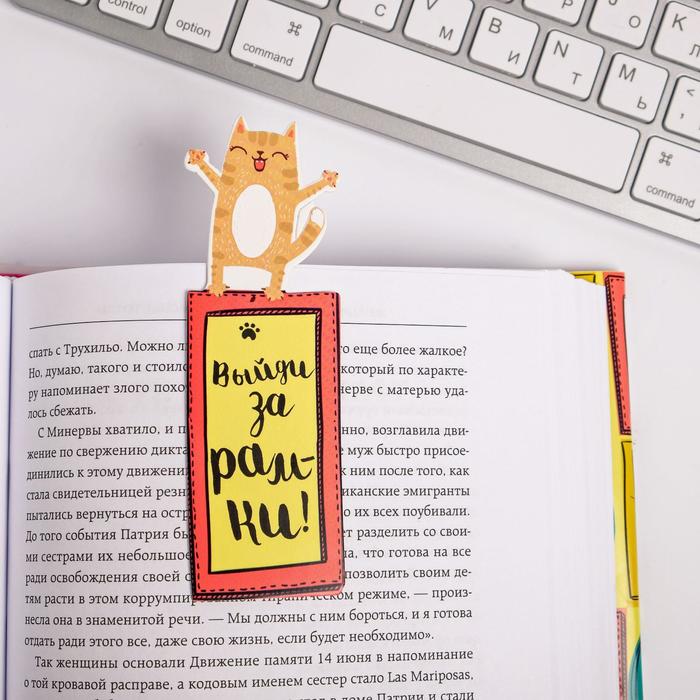 control
option
⌘
command
С
V М
B И
N Т
M Ь
J О
K Л
< ,
⌘
command
Выйди
за
рам-
ки!
спать с Трухильо. Можно л го еще более жалкое?
Но, думаю, такого и стоило который по характе-
ру напоминает злого похо нерве с матерью уда-
лось сбежать.
С Минервы хватило, и п нно, возглавила дви-
жение по свержению дикта е муж быстро присое-
динились к этому движени к ним после того, как
стала свидетельницей резн иканские эмигранты
пытались вернуться на остр о их всех поубивали.
До того события Патрия бы ет разделить со свои-
ми сестрами их небольшое ла, что готова на все
ради освобождения своей с позволить своим де-
тям расти в этом коррумпированном тираническом режиме, — произ-
несла она в знаменитой речи. — Мы должны с ним бороться, и я готова
отдать ради этого все, даже свою жизнь, если будет необходимо».
Так женщины основали Движение памяти 14 июня в напоминание
о той кровавой расправе, а кодовым именем сестер стало Las Mariposas,
в доме Патрии и стали